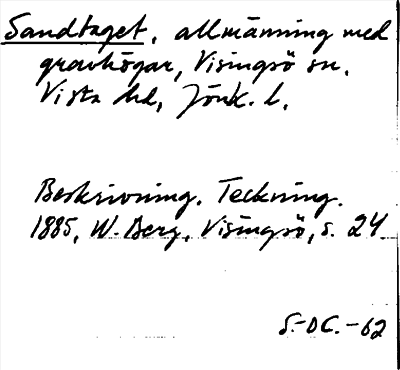 Sandtaget, allmänning med
gravhögar, Visingsö sn.
Vista hd, Jönk. l.
Beskrivning. Teckning.
1885, W. Berg, Visingsö, s. 24
S.-OC.-62